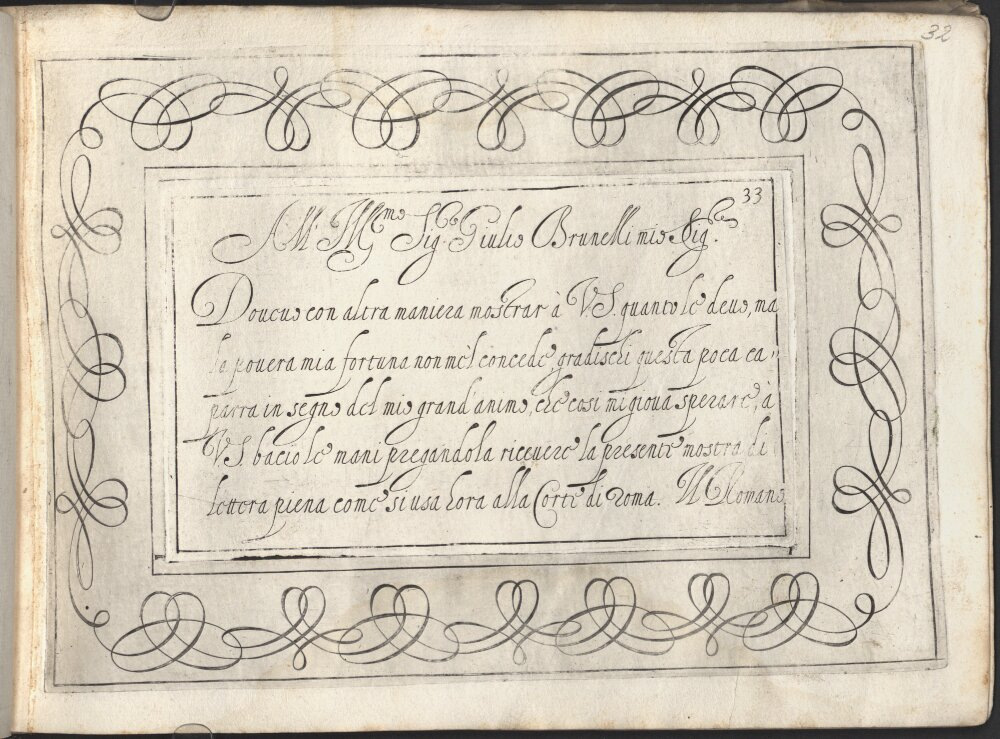 32
33
All' Ill.mo Sig.r Giulio Brunelli mio Sig.re
Doueuo con altra maniera mostrar à V.S. quanto le deuo, ma
la pouera mia fortuna non me'l concede, gradischi questa poca ca-,
parra in segno del mio grand'animo, che cosi mi gioua sperare, à
V.S. bacio le mani pregandola riceuere la presente mostra di
lettera piena come si usa hora alla Corte di Roma. Il Romano